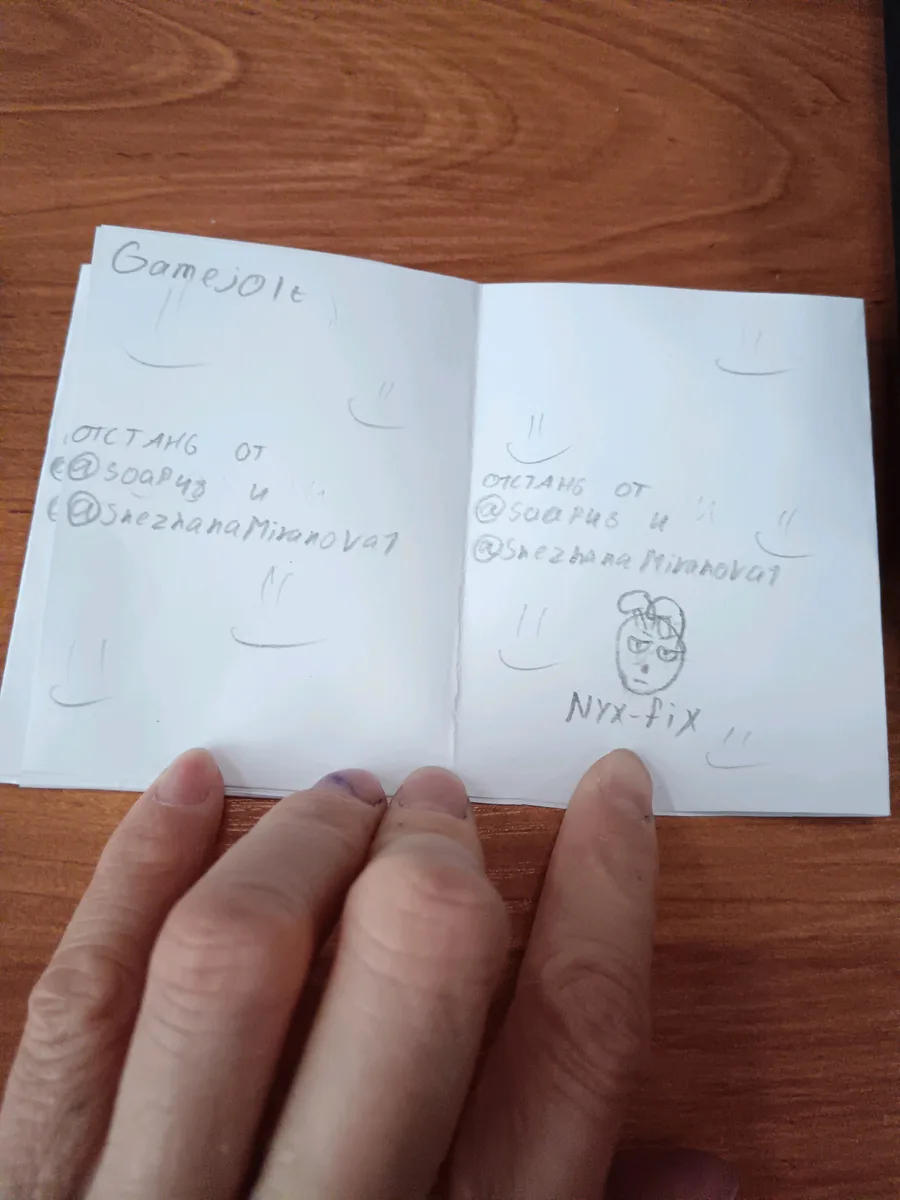 Gamejolt
ОТСТАНЬ ОТ
@Soapu8 и
@SnezhanaMiranova1
ОТСТАНЬ ОТ
@Soapu8 и
@SnezhanaMiranova1
Nyx-fix